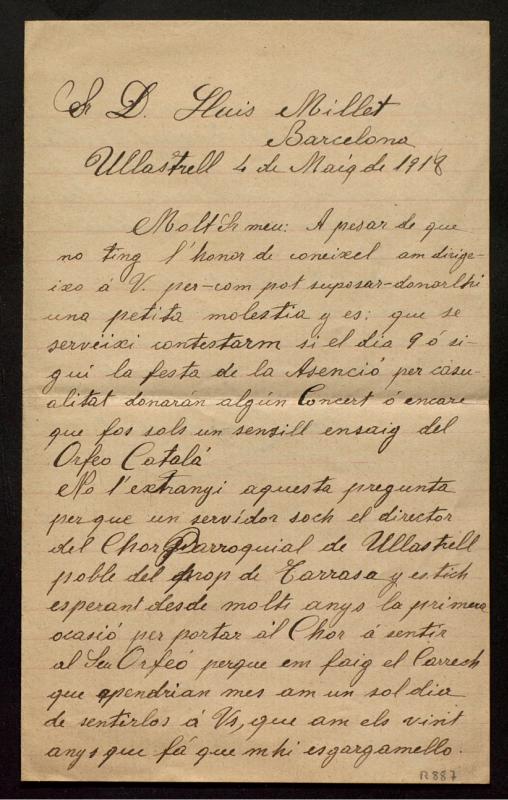 Sr D. Lluis Millet
Barcelona
Ullastrell 4 de Maig de 1918
Molt Sr meu: A pesar de que
no ting l'honor de coneixel am dirige-
ixo á V. per-com pot suposar-donarlhi
una petita molestia y es: que se
serveixi contestarm si el dia 9 ó si-
gui la festa de la Asenció per casu-
alitat donarán algún Concert ó encare
que fos sols un sensill ensaig del
Orfeo Catalá
No l'extranyi aquesta pregunta
per que un servidor soch el director
del Chor Parroquial de Ullastrell
poble del prop de Tarrasa y estich
esperant desde molts anys la primera
ocasió per portar ál Chor á sentir
al Seu Orfeó perque em faig el Carrech
que apendrian mes am un sol dia
de sentirlos á Vs, que am els vint
anys que fá que mhi esgargamello.
R 887